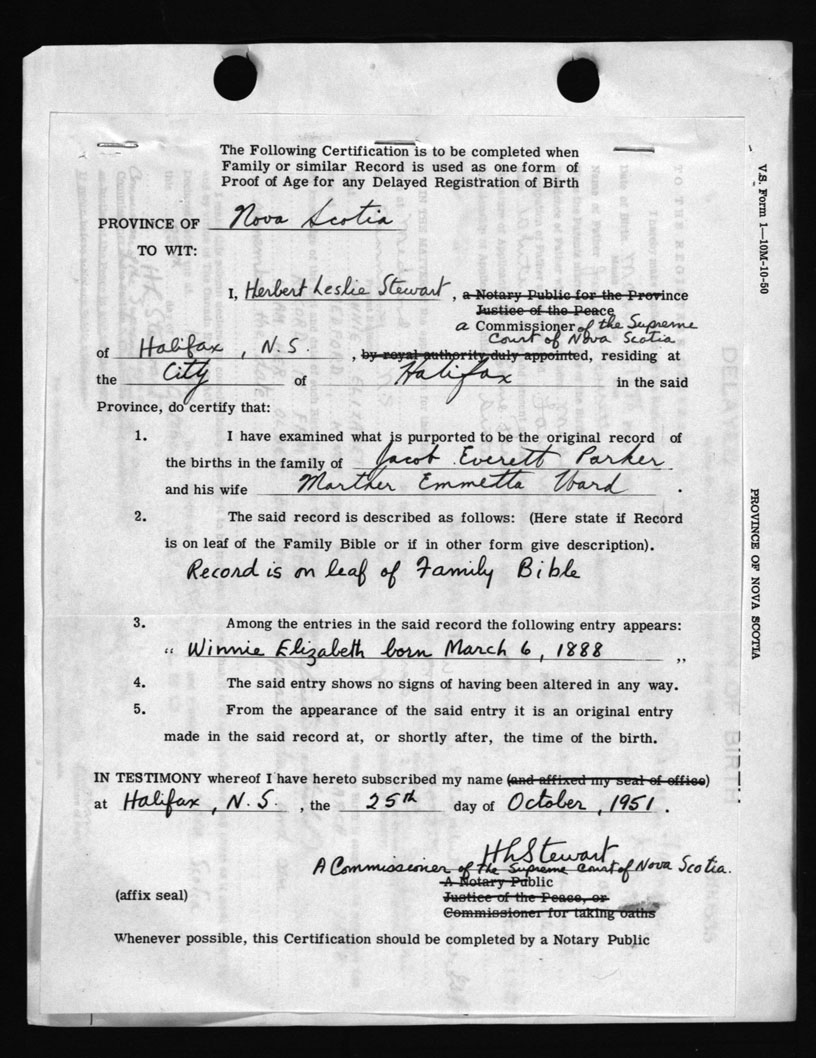 The Following Certification is to be completed when
Family or similar Record is used as one form of
Proof of Age for any Delayed Registration of Birth
PROVINCE OF Nova Scotia
TO WIT:
I, Herbert Leslie Stewart, a Notary Public for the Province
Justice of the Peace
a Commissioner of the Supreme
Court of Nova Scotia
of Halifax, N.S., by royal authority duly appointed, residing at
the City of Halifax in the said
Province, do certify that:
1. I have examined what is purported to be the original record of
the births in the family of Jacob Everett Parker
and his wife Marther Emmetta Ward.
2. The said record is described as follows: (Here state if Record
is on leaf of the Family Bible or if in other form give description).
Record is on leaf of Family Bible
3. Among the entries in the said record the following entry appears:
"Winnie Elizabeth born March 6, 1888"
4. The said entry shows no signs of having been altered in any way.
5. From the appearance of the said entry it is an original entry
made in the said record at, or shortly after, the time of the birth.
IN TESTIMONY whereof I have hereto subscribed my name (and affixed my seal of office)
at Halifax, N.S., the 25th day of October, 1951.
HLStewart
A Commissioner of the Supreme Court of Nova Scotia.
A Notary Public
(affix seal) Justice of the Peace, or
Commissioner for taking oaths
Whenever possible, this Certification should be completed by a Notary Public
V.S. Form 1—10M-10-50
PROVINCE OF NOVA SCOTIA